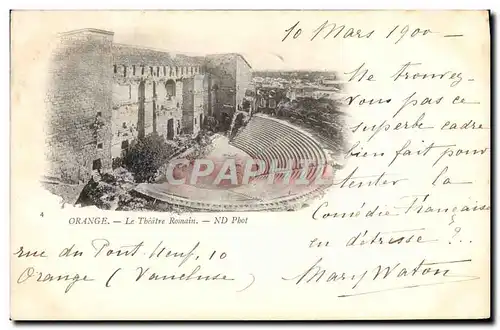 10 Mars 1900 —
Ne trouvez-
vous pas ce
superbe cadre
bien fait pour
tenter la
Comédie Française
en détresse ?..
Mary Waton
CPARAMA
4
ORANGE. — Le Théâtre Romain. — ND Phot
rue du Pont-Neuf, 10
Orange (Vaucluse)